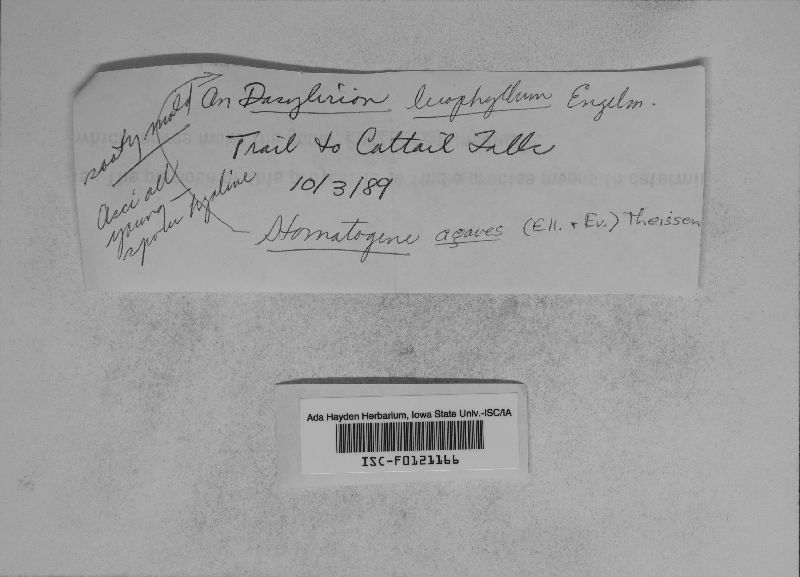 sooty mold
On Dasylirion leiophyllum Engelm.
Trail to Cattail Falls
10/3/89
Asci all
young
spores hyaline
Stomatogene agaves (Ell. + Ev.) Theissen
Ada Hayden Herbarium, Iowa State Univ.-ISC/IA
ISC-F0121166